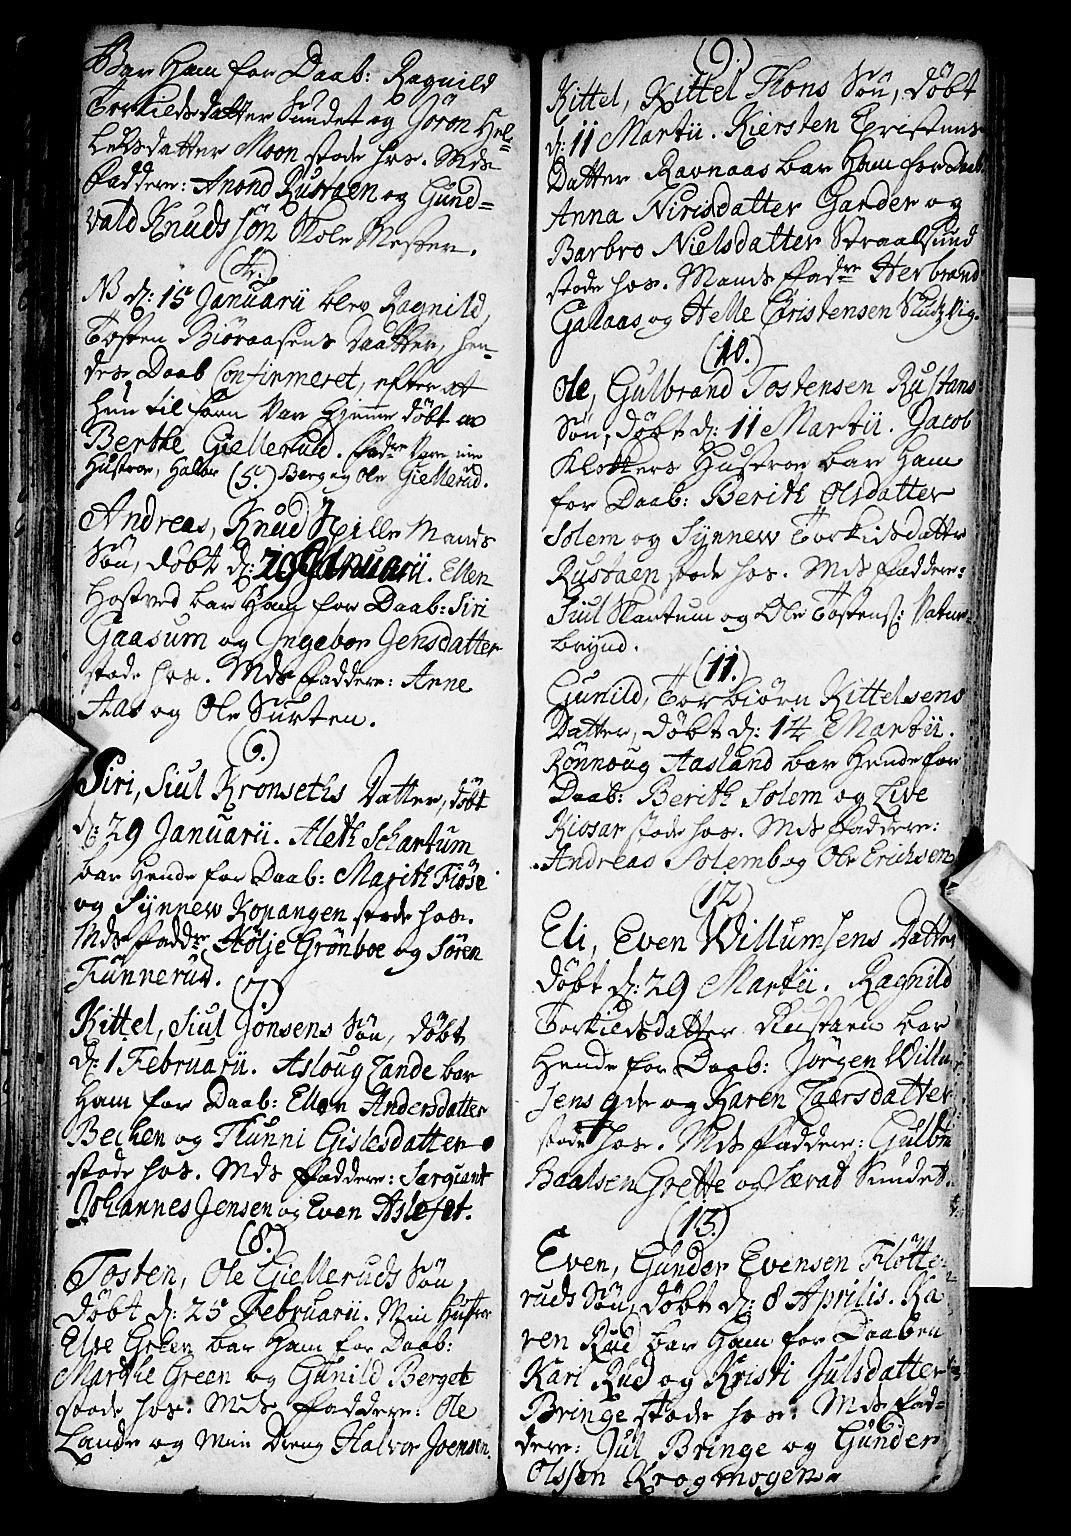 Bar Ham for Daab: Ragnild
Torkildsdatter Sundet og Göron Hel=
lessdatter Moon stode hos. Mds
Faddere: Anond Rustaen og Gund=
vald Knudssön Skole Mester.
(4.)
NB d: 15 Januarii blev Ragnild,
Tosten Biöraasens Daatter, hen=
des Daab Confirmeret, efter at
hun til forn var Hjemme döbt
Berthe Giellerud. Fadre vare min
Hustroe, Halvor Berg og Ole Giellerud.
(5.)
Andreas, Knud Hille Mands
Sön, döbt d: 20 Januarii. Ellen
Hostved bar Ham for Daab: Siri
Gaasum og Ingebor Jensdatter
stode hos. Mds Faddere: Anne
Aas og Ole Surten.
(6.)
Siri, Siul Kronseths Datter, döbt
d: 29 Januarii. Aleth Schartum
bar Hende for Daab: Marith Flöse
og Synnew Kopangen stode hos.
Mds Faddre Hölje Grönboe og Sören
Funnerud.
(7.)
Kittel, Siul Jonsens Sön, döbt
d: 1 Februarii. Asloug Lande bar
Ham for Daab: Ellen Andersdatter
Becken og Gunni Gislesdatter
stode hos. Mds Faddere: Sargiant
Johannes Jensen og Even Aslefet.
(8.)
Tosten, Ole Gielleruds Sön,
döbt d: 25 Februarii. Min Hustroe
Else Green bar Ham for Daab:
Marthe Green og Gunild Berget
stode hos: Mds Faddere: Ole
Lande og min Dreng Halvor Joensen.
(9.)
Kittel, Kittel Flons Sön, döbt
d: 11 Martii. Kiersten Christens
Datter Ravnaas bar Ham for Daab
Anna Nirisdatter Garder og
Barbro Nielsdatter Straalsund
stode hos. Mands Fadre Herbrand
Galaas og Helle Christensen Skutz Vig.
(10.)
Ole, Gulbrand Tostensen Rustans
Sön, döbt d: 11 Martii. Jacob
Klokkers Hustroe bar Ham
for Daab: Berith Olsdatter
Solem og Synnew Torkildsdatter
Rustaen stode hos. Mds Faddere:
Siul Skartum og Ole Tostens: Satur=
brynd.
(11.)
Gunild, Torbiörn Kittelsens
Datter, döbt d: 14 Martii.
Rönnoug Aasland bar Hende for
Daab: Berith Solem og Live
Kiosar stode hos. Mds Faddere:
Andreas Solemb og Ole Erichsen
(12)
Eli, Even Willumsens Datter
döbt d: 29 Martii. Ragnild
Torkildsdatter Rustaen bar
Hende for Daab: Jörgen Willum
sens og Karen Laersdatter
stode hos. Mds Faddere: Gulbr:
Baalsen Grette og Særad Sundet.
(13.)
Even, Gunder Evensen Flötte=
ruds Sön, döbt d: 8 Aprilis. Ka
ren Rud bar Ham for Daaben
Kari Rud og Kristi Julsdatter
Bringe stode hos: Mds Fad=
dere: Jul Bringe og Gunder
Olssen Krogmogen.